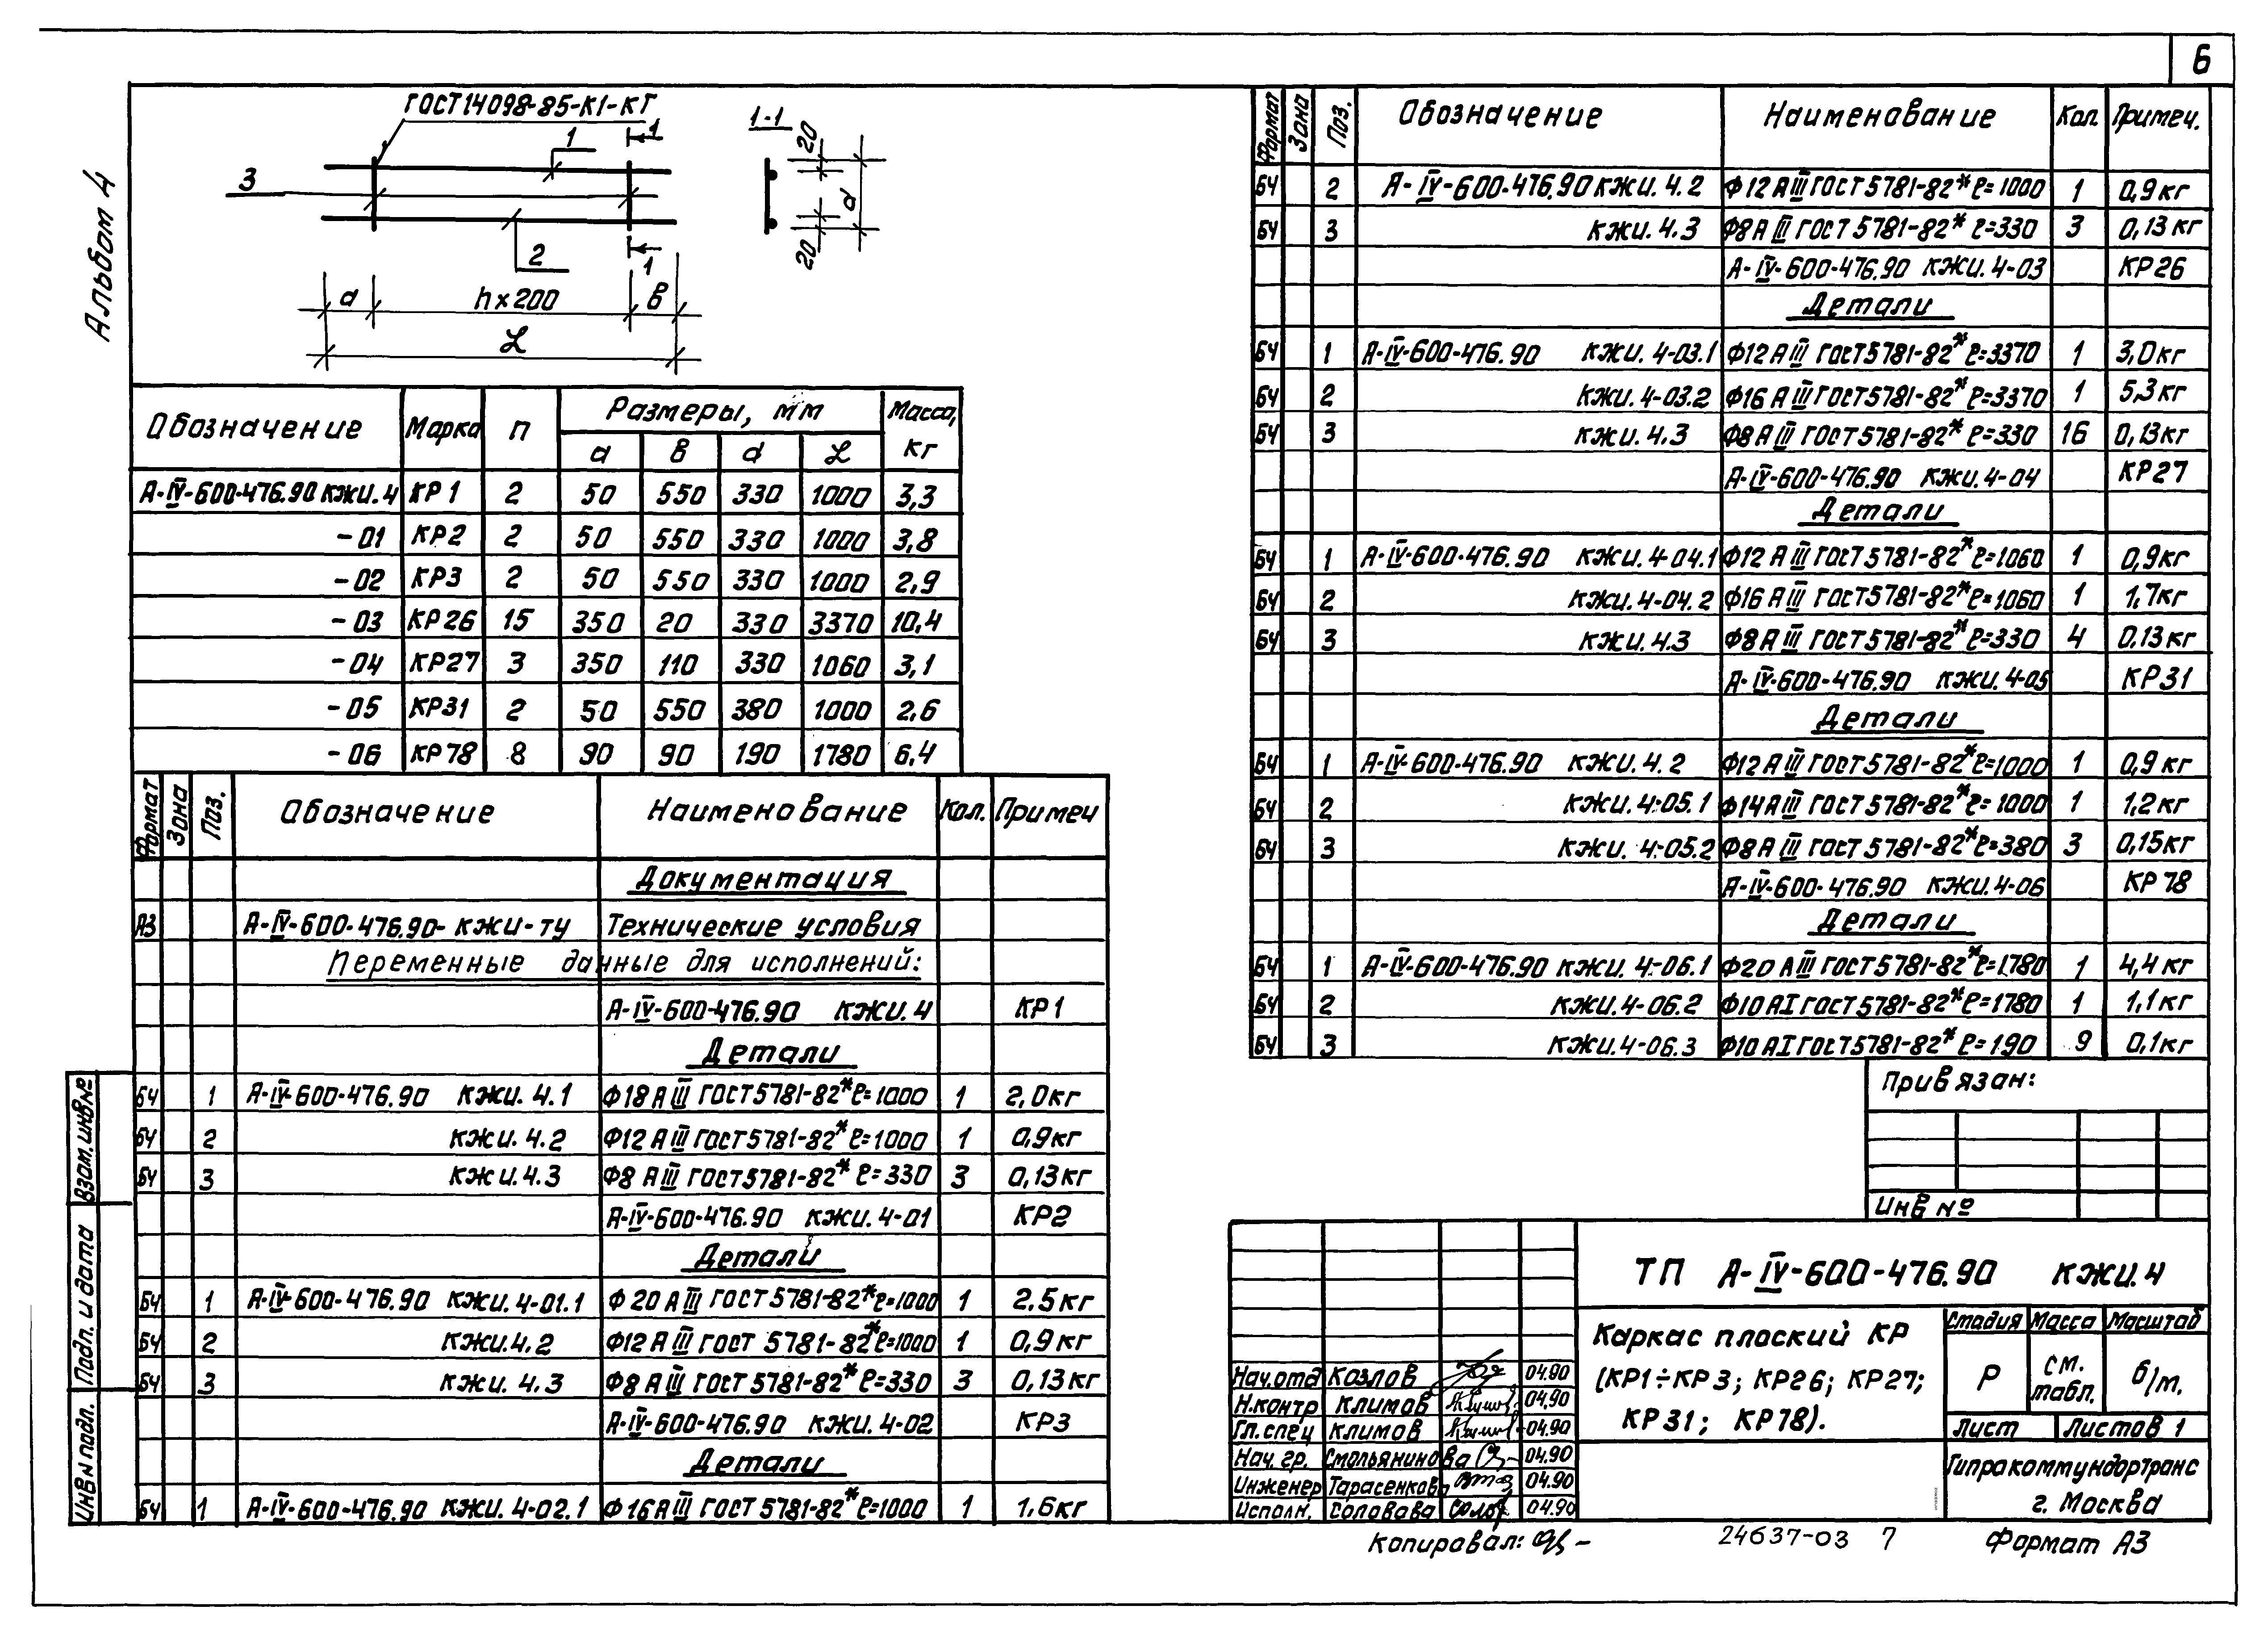 6
Альбом 4
ГОСТ 14098-85-К1-КТ
1
1
3
2
1
а
h×200
в
L
1-1
20
d
20
Обозначение Марка п Размеры, мм Масса, кг
а в d L
А-IV-600-476.90 КЖИ.4 КР1 2 50 550 330 1000 3,3
-01 КР2 2 50 550 330 1000 3,8
-02 КР3 2 50 550 330 1000 2,9
-03 КР26 15 350 20 330 3370 10,4
-04 КР27 3 350 110 330 1060 3,1
-05 КР31 2 50 550 380 1000 2,6
-06 КР78 8 90 90 190 1780 6,4
Формат Зона Поз. Обозначение Наименование Кол. Примеч
Документация
А3 А-IV-600-476.90-КЖИ-ТУ Технические условия
Переменные данные для исполнений:
А-IV-600-476.90 КЖИ.4 КР1
Детали
БЧ 1 А-IV-600-476.90 КЖИ.4.1 Ф18 А III ГОСТ 5781-82* ℓ=1000 1 2,0кг
БЧ 2 КЖИ.4.2 Ф12 А III ГОСТ 5781-82* ℓ=1000 1 0,9кг
БЧ 3 КЖИ.4.3 Ф8 А III ГОСТ 5781-82* ℓ=330 3 0,13кг
А-IV-600-476.90 КЖИ.4-01 КР2
Детали
БЧ 1 А-IV-600-476.90 КЖИ.4-01.1 Ф20 А III ГОСТ 5781-82* ℓ=1000 1 2.5кг
БЧ 2 КЖИ.4.2 Ф12 А III ГОСТ 5781-82* ℓ=1000 1 0,9кг
БЧ 3 КЖИ.4.3 Ф8 А III ГОСТ 5781-82* ℓ=330 3 0,13кг
А-IV-600-476.90 КЖИ.4-02 КР3
Детали
БЧ 1 А-IV-600-476.90 КЖИ.4-02.1 Ф16 А III ГОСТ 5781-82* ℓ=1000 1 1,6кг
Взам.инв№
Подп. и дата
Инв№ подл.
Формат Зона Поз. Обозначение Наименование Кол. Примеч.
БЧ 2 А-IV-600-476.90 КЖИ.4.2 Ф12 А III ГОСТ 5781-82* ℓ=1000 1 0,9кг
БЧ 3 КЖИ.4.3 Ф8 А III ГОСТ 5781-82* ℓ=330 3 0,13кг
А-IV-600-476.90 КЖИ.4-03 КР26
Детали
БЧ 1 А-IV-600-476.90 КЖИ.4-03.1 Ф12 А III ГОСТ 5781-82* ℓ=3370 1 3,0кг
БЧ 2 КЖИ.4-03.2 Ф16 А III ГОСТ 5781-82* ℓ=3370 1 5,3кг
БЧ 3 КЖИ.4.3 Ф8 А III ГОСТ 5781-82* ℓ=330 16 0,13кг
А-IV-600-476.90 КЖИ.4-04 КР27
Детали
БЧ 1 А-IV-600-476.90 КЖИ.4-04.1 Ф12 А III ГОСТ 5781-82* ℓ=1060 1 0,9кг
БЧ 2 КЖИ.4-04.2 Ф16 А III ГОСТ 5781-82* ℓ=1060 1 1,7кг
БЧ 3 КЖИ.4.3 Ф8 А III ГОСТ 5781-82* ℓ=330 4 0,13кг
А-IV-600-476.90 КЖИ.4-05 КР31
Детали
БЧ 1 А-IV-600-476.90 КЖИ.4.2 Ф12 А III ГОСТ 5781-82* ℓ=1000 1 0,9кг
БЧ 2 КЖИ.4-05.1 Ф14 А III ГОСТ 5781-82* ℓ=1000 1 1,2кг
БЧ 3 КЖИ.4-05.2 Ф8 А III ГОСТ 5781-82* ℓ=380 3 0,15кг
А-IV-600-476.90 КЖИ.4-06 КР78
Детали
БЧ 1 А-IV-600-476.90 КЖИ.4-06.1 Ф20 А III ГОСТ 5781-82* ℓ=1780 1 4,4кг
БЧ 2 КЖИ.4-06.2 Ф10 АI ГОСТ 5781-82* ℓ=1780 1 1,1кг
БЧ 3 КЖИ.4-06.3 Ф10 АI ГОСТ 5781-82* ℓ=190 9 0,1кг
Привязан:
Инв №
ТП А-IV-600-476.90 КЖИ.4
Каркас плоский КР
(КР1÷КР3; КР26; КР27;
КР31; КР78).
Стадия Масса Масштаб
Р см. табл. б/м.
Лист Листов 1
Гипрокоммундортранс
г. Москва
Нач.отд Козлов 04.90
Н.контр Климов 04.90
Гл.спец Климов 04.90
Нач.гр. Смольянинова 04.90
Инженер Тарасенкова 04.90
Исполн. Соловава 04.90
Копировал:
24637-03 7
Формат А3